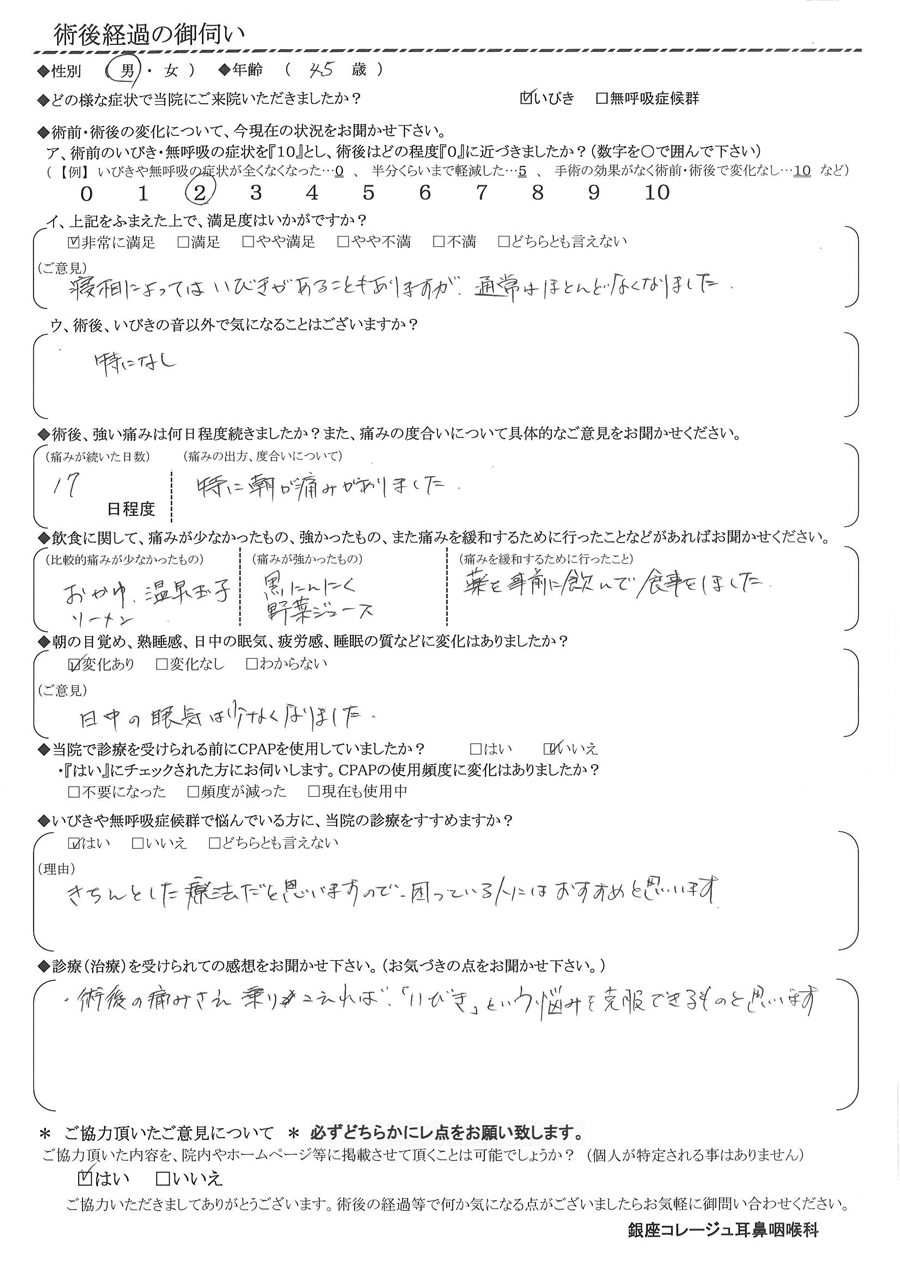 術後経過の御伺い
◆性別 （ 男 ・ 女 ） ◆年齢 （ 45 歳 ）
◆どの様な症状で当院にご来院いただきましたか？ ☑いびき □無呼吸症候群
◆術前・術後の変化について、今現在の状況をお聞かせ下さい。
ア、術前のいびき・無呼吸の症状を『10』とし、術後はどの程度『0』に近づきましたか？（数字を〇で囲んで下さい）
（【例】 いびきや無呼吸の症状が全くなくなった…0 、 半分くらいまで軽減した…5 、 手術の効果がなく術前・術後で変化なし…10 など）
0 1 2 3 4 5 6 7 8 9 10
イ、上記をふまえた上で、満足度はいかがですか？
☑非常に満足 □満足 □やや満足 □やや不満 □不満 □どちらとも言えない
（ご意見）
寝相によってはいびきがあることもありますが、通常はほとんどなくなりました．
ウ、術後、いびきの音以外で気になることはございますか？
特になし
◆術後、強い痛みは何日程度続きましたか？また、痛みの度合いについて具体的なご意見をお聞かせください。
（痛みが続いた日数） （痛みの出方、度合いについて）
17 日程度 特に朝が痛みがありました．
◆飲食に関して、痛みが少なかったもの、強かったもの、また痛みを緩和するために行ったことなどがあればお聞かせください。
（比較的痛みが少なかったもの） （痛みが強かったもの） （痛みを緩和するために行ったこと）
おかゆ．温泉玉子 黒にんにく 薬を事前に飲んで食事をしました．
ソーメン 野菜ジュース
◆朝の目覚め、熟睡感、日中の眠気、疲労感、睡眠の質などに変化はありましたか？
☑変化あり □変化なし □わからない
（ご意見）
日中の眠気は少なくなりました．
◆当院で診療を受けられる前にCPAPを使用していましたか？ □はい ☑いいえ
・『はい』にチェックされた方にお伺いします。CPAPの使用頻度に変化はありましたか？
□不要になった □頻度が減った □現在も使用中
◆いびきや無呼吸症候群で悩んでいる方に、当院の診療をすすめますか？
☑はい □いいえ □どちらとも言えない
（理由）
きちんとした療法だと思いますので、困っている人にはおすすめと思います
◆診療（治療）を受けられての感想をお聞かせ下さい。（お気づきの点をお聞かせ下さい。）
・術後の痛みさえ乗りこえれば、「いびき」という悩みを克服できるものと思います
＊ ご協力頂いたご意見について ＊ 必ずどちらかにレ点をお願い致します。
ご協力頂いた内容を、院内やホームページ等に掲載させて頂くことは可能でしょうか？ （個人が特定される事はありません）
☑はい □いいえ
ご協力いただきましてありがとうございます。術後の経過等で何か気になる点がございましたらお気軽に御問い合わせください。
銀座コレージュ耳鼻咽喉科